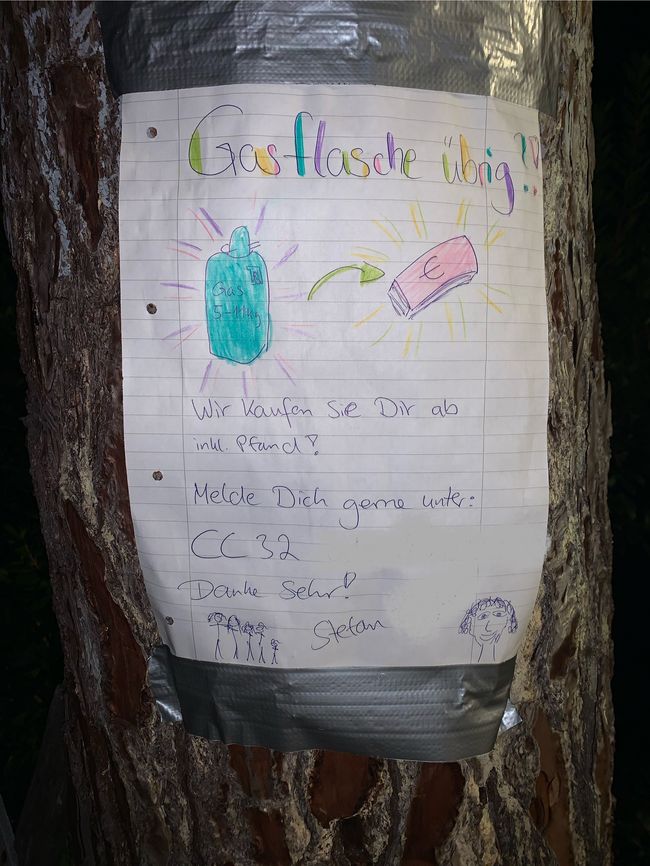 Gasflasche übrig?!
Gas
5-11kg
€
Wir kaufen Sie Dir ab
inkl. Pfand!
Melde Dich gerne unter:
CC 32
Danke Sehr!
Stefan